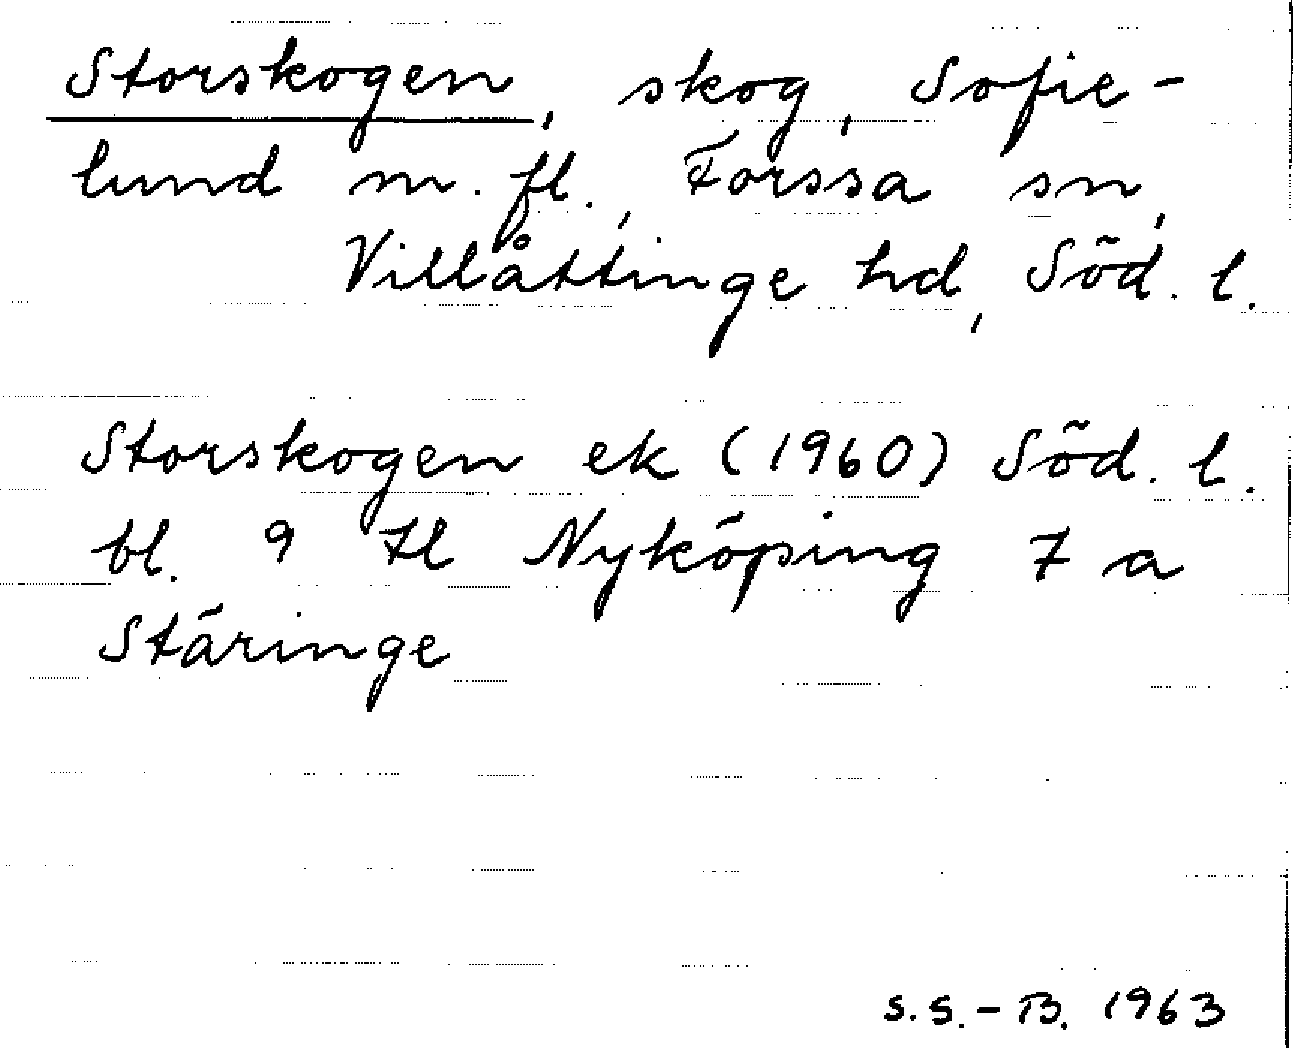 Storskogen, skog, Sofie-
lund m. fl., Forssa sn,
Villåttinge hd, Söd. l.
Storskogen ek (1960) Söd. l.
bl. 9 til Nyköping 7 a
Stäringe
S.S.-B. 1963